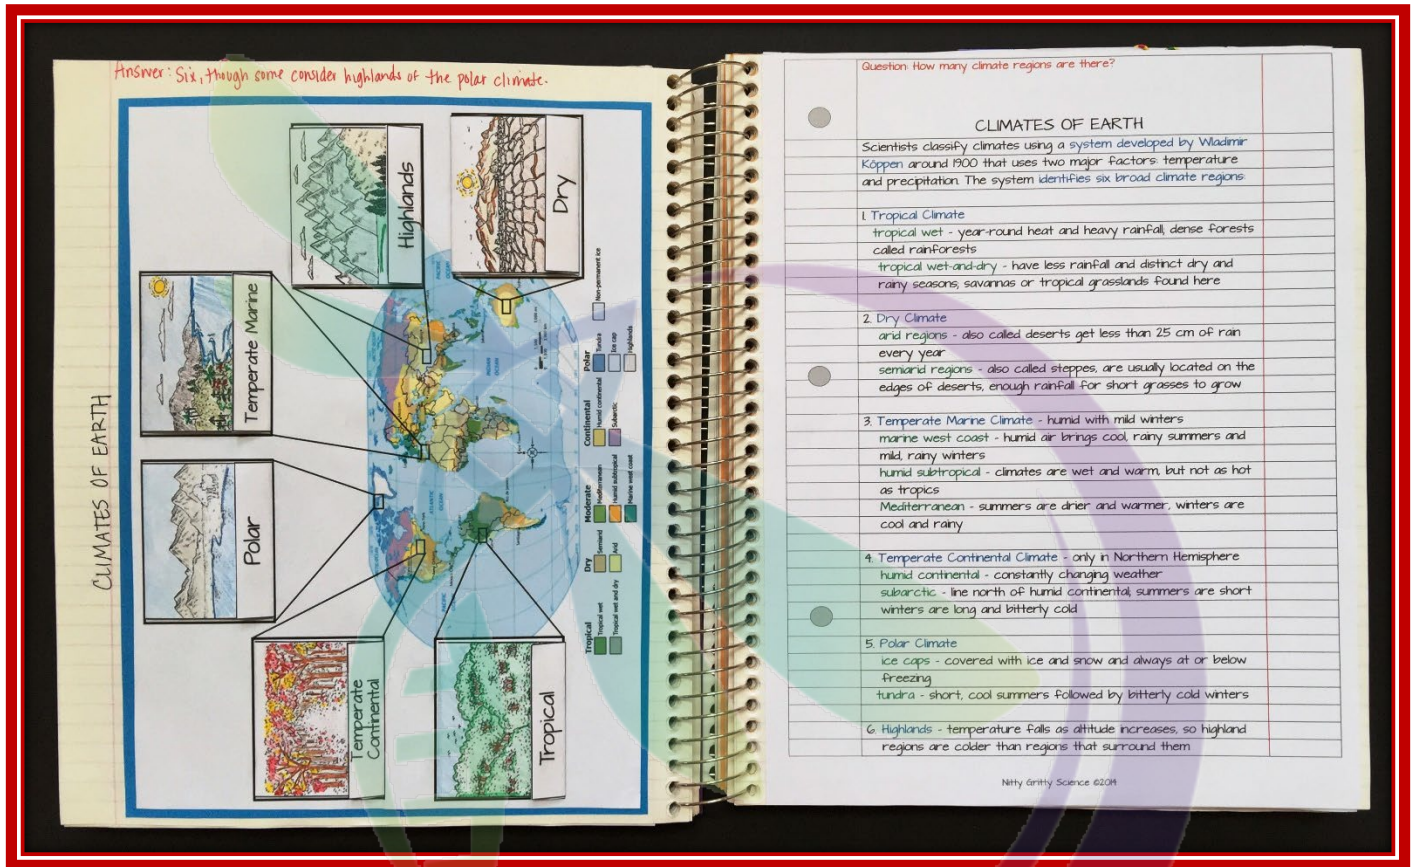 Answer: Six, though some consider highlands of the polar climate.
CLIMATES OF EARTH
Highlands
Dry
Temperate Marine
Polar
Temperate
Continental
Tropical
Tropical
Tropical wet
Tropical wet and dry
Dry
Semiarid
Arid
Moderate
Mediterranean
Humid subtropical
Marine west coast
Continental
Humid continental
Subarctic
Polar
Tundra
Ice cap
Highlands
Non-permanent ice
PACIFIC
OCEAN
ATLANTIC
OCEAN
INDIAN
OCEAN
PACIFIC
OCEAN
Question: How many climate regions are there?
CLIMATES OF EARTH
Scientists classify climates using a system developed by Wladimir
Köppen around 1900 that uses two major factors: temperature
and precipitation. The system identifies six broad climate regions:
1. Tropical Climate
tropical wet - year-round heat and heavy rainfall, dense forests
called rainforests
tropical wet-and-dry - have less rainfall and distinct dry and
rainy seasons, savannas or tropical grasslands found here
2. Dry Climate
arid regions - also called deserts get less than 25 cm of rain
every year
semiarid regions - also called steppes, are usually located on the
edges of deserts, enough rainfall for short grasses to grow
3. Temperate Marine Climate - humid with mild winters
marine west coast - humid air brings cool, rainy summers and
mild, rainy winters
humid subtropical - climates are wet and warm, but not as hot
as tropics
Mediterranean - summers are drier and warmer, winters are
cool and rainy
4. Temperate Continental Climate - only in Northern Hemisphere
humid continental - constantly changing weather
subarctic - line north of humid continental; summers are short
winters are long and bitterly cold
5. Polar Climate
ice caps - covered with ice and snow and always at or below
freezing
tundra - short, cool summers followed by bitterly cold winters
6. Highlands - temperature falls as altitude increases, so highland
regions are colder than regions that surround them
Nitty Gritty Science ©2014